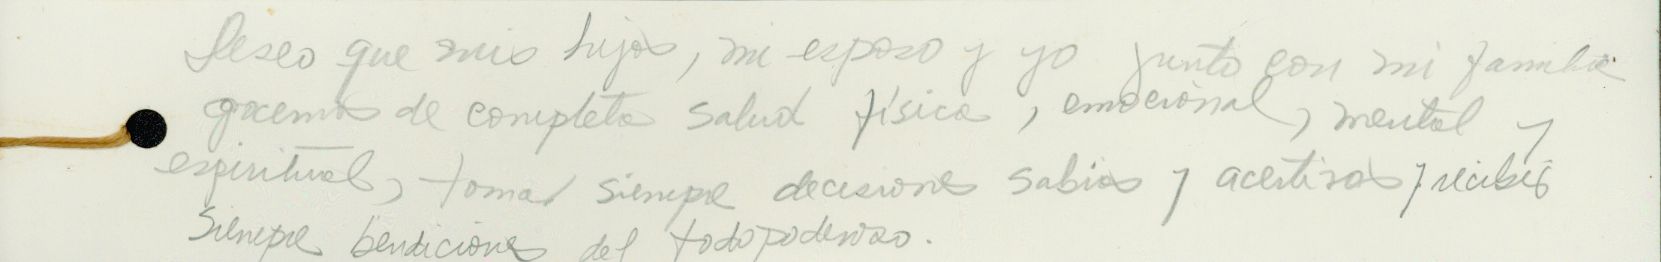 Deseo que mis hijos, mi esposo y yo junto con mi familia
gocemos de completa salud física, emocional, mental y
espiritual, tomar siempre decisiones sabias y acertivas y recibir
siempre bendiciones del todopoderoso.